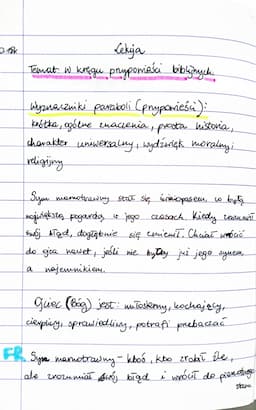 Lekcja
Temat: W kręgu przypowieści biblijnych.
Wyznaczniki paraboli (przypowieści):
krótka, ogólne znaczenia, prosta historia,
charakter uniwersalny, wydźwięk moralny i
religijny
Syn marnotrawny stał się świniopasem, co było
największą pogardą w jego czasach. Kiedy zrozumiał
swój błąd, dogłębnie się zmienił. Chciał wrócić
do ojca nawet, jeśli nie byłby już jego synem,
a najemnikiem.
Ojciec (Bóg) jest: miłosierny, kochający,
cierpliwy, sprawiedliwy, potrafi przebaczać
FR Syn marnotrawny - ktoś, kto zrobił źle,
ale zrozumiał swój błąd i wrócił do
stanu